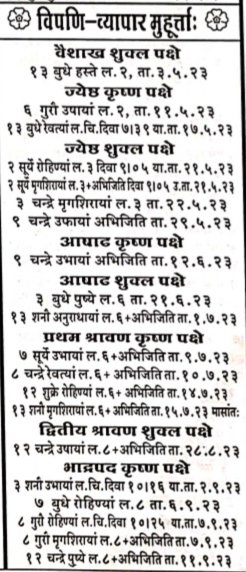 विपणि-व्यापार मुहूर्त्ताः
वैशाख शुक्ल पक्षे
१३ बुधे हस्ते ल.२, ता.३.५.२३
ज्येष्ठ कृष्ण पक्षे
६ गुरौ उषायां ल.२, ता.११.५.२३
१३ बुधे रेवत्यां ल.चि.दिवा ७।३९ या.ता.१७.५.२३
ज्येष्ठ शुक्ल पक्षे
२ सूर्ये रोहिण्यां ल.३ दिवा ९।०५ या.ता.२१.५.२३
२ सूर्ये मृगशिरायां ल.३+अभिजिति दिवा ९।०५ उ.ता.२१.५.२३
३ चन्द्रे मृगशिरायां ल.३ ता.२२.५.२३
९ चन्द्रे उफायां अभिजिति ता.२९.५.२३
आषाढ कृष्ण पक्षे
९ चन्द्रे उभायां अभिजिति ता.१२.६.२३
आषाढ शुक्ल पक्षे
३ बुधे पुष्ये ल.६ ता.२१.६.२३
१३ शनौ अनुराधायां ल.६+अभिजिति ता.१.७.२३
प्रथम श्रावण कृष्ण पक्षे
७ सूर्ये उभायां ल.६+अभिजिति ता.९.७.२३
८ चन्द्रे रेवत्यां ल.६+ अभिजिति ता.१०.७.२३
१२ शुक्रे रोहिण्यां ल.६+अभिजिति ता.१४.७.२३
१३ शनौ मृगशिरायां ल.६+अभिजिति ता.१५.७.२३ मासांतः
द्वितीय श्रावण शुक्ल पक्षे
१२ चन्द्रे उषायां ल.८+अभिजिति ता.२८.८.२३
भाद्रपद कृष्ण पक्षे
३ शनौ उभायां ल.चि.दिवा १०।१६ या.ता.२.९.२३
७ बुधे रोहिण्यां ल.८ ता.६.९.२३
८ गुरौ रोहिण्यां ल.चि.दिवा १०।२५ या.ता.७.९.२३
८ गुरौ मृगशिरायां ल.८+अभिजिति ता.७.९.२३
१२ चन्द्रे पुष्ये ल.८+अभिजिति ता.११.९.२३